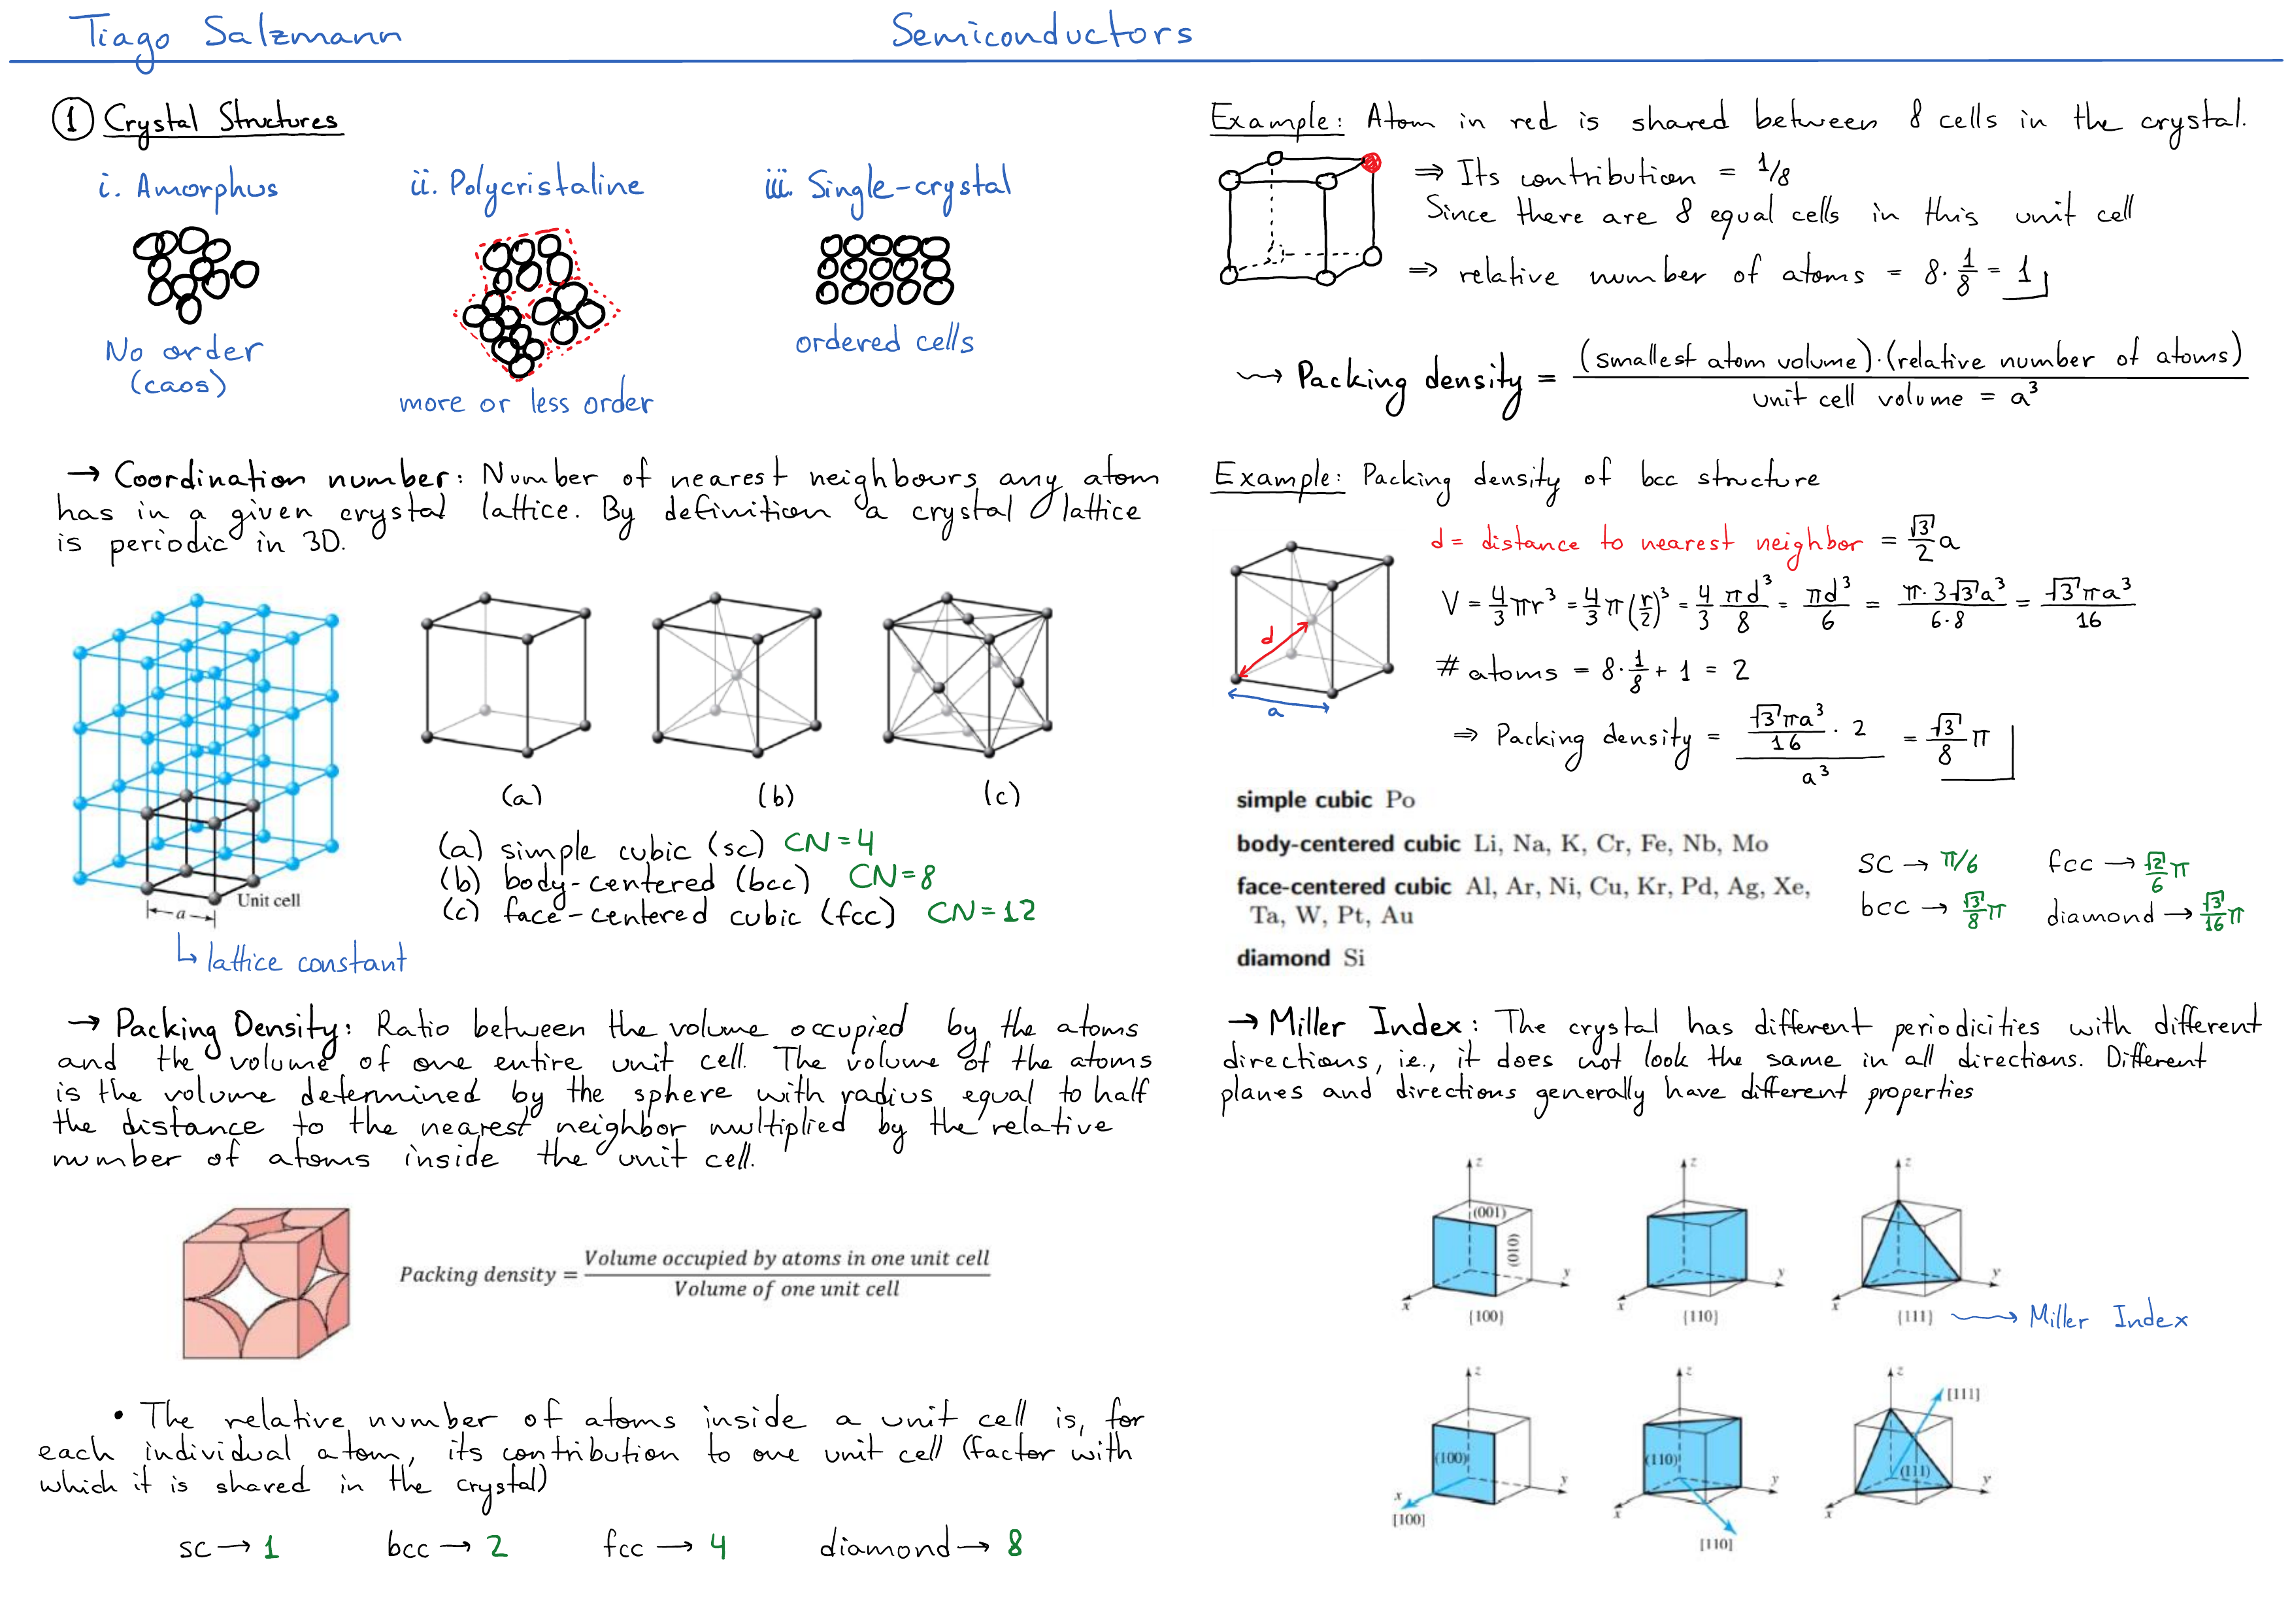 Tiago Salzmann
Semiconductors
① Crystal Structures
i. Amorphus
ii. Polycristaline
iii. Single-crystal
No order
(caos)
more or less order
ordered cells
→ Coordination number: Number of nearest neighbours any atom
has in a given crystal lattice. By definition a crystal lattice
is periodic in 3D.
Unit cell
a
↳ lattice constant
(a)
(b)
(c)
(a) simple cubic (sc) CN=4
(b) body-centered (bcc) CN=8
(c) face-centered cubic (fcc) CN=12
→ Packing Density: Ratio between the volume occupied by the atoms
and the volume of one entire unit cell. The volume of the atoms
is the volume determined by the sphere with radius equal to half
the distance to the nearest neighbor multiplied by the relative
number of atoms inside the unit cell.
Packing density = Volume occupied by atoms in one unit cell / Volume of one unit cell
• The relative number of atoms inside a unit cell is, for
each individual atom, its contribution to one unit cell (factor with
which it is shared in the crystal)
sc → 1 bcc → 2 fcc → 4 diamond → 8
Example: Atom in red is shared between 8 cells in the crystal.
⇒ Its contribution = 1/8
Since there are 8 equal cells in this unit cell
⇒ relative number of atoms = 8·1/8 = 1
⇝ Packing density = (smallest atom volume)·(relative number of atoms) / unit cell volume = a³
Example: Packing density of bcc structure
d = distance to nearest neighbor = √3/2 a
V = 4/3 πr³ = 4/3 π(r/2)³ = 4/3 πd³/8 = πd³/6 = π·3√3a³/6·8 = √3πa³/16
# atoms = 8·1/8 + 1 = 2
d
a
⇒ Packing density = (√3πa³/16 · 2) / a³ = √3/8 π
simple cubic Po
body-centered cubic Li, Na, K, Cr, Fe, Nb, Mo
face-centered cubic Al, Ar, Ni, Cu, Kr, Pd, Ag, Xe,
Ta, W, Pt, Au
diamond Si
sc → π/6 fcc → √2/6 π
bcc → √3/8 π diamond → √3/16 π
→ Miller Index: The crystal has different periodicities with different
directions, ie., it does not look the same in all directions. Different
planes and directions generally have different properties
z z z
(001)
(010)
y y y
x x x
{100} {110} {111} ⇝ Miller Index
z z z
[111]
(100) (110) (111)
y y y
x x x
[100]
[110]